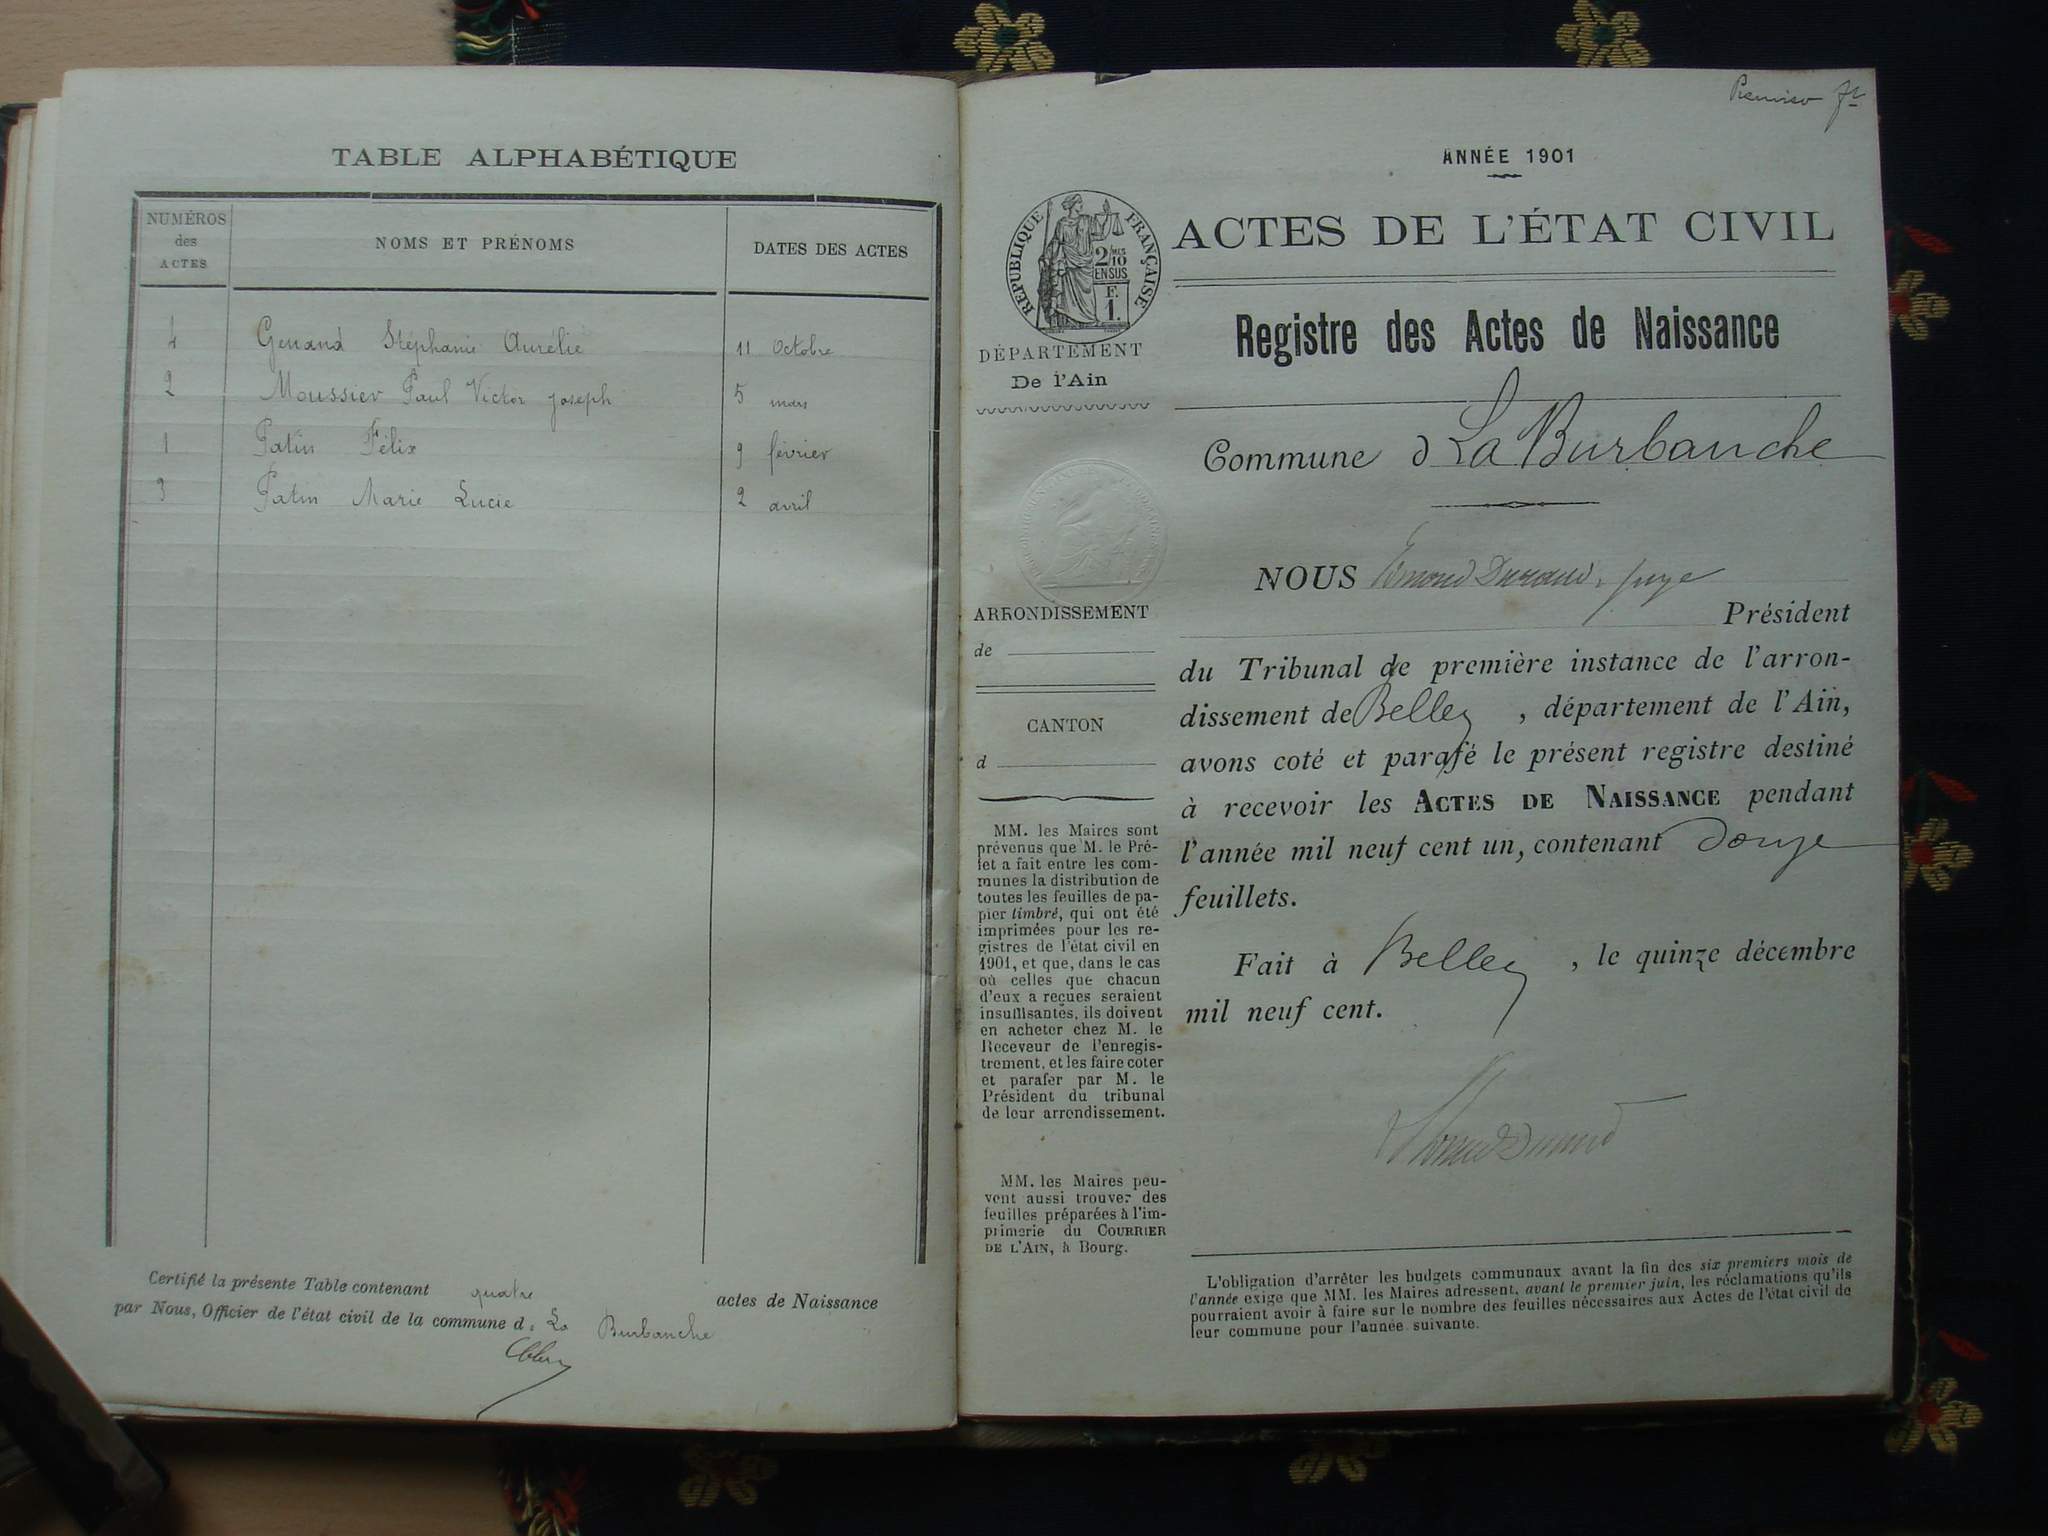 TABLE ALPHABÉTIQUE
NUMÉROS
des
ACTES
NOMS ET PRÉNOMS
DATES DES ACTES
4 Genand Stéphanie Aurélie 11 Octobre
2 Moussier Paul Victor Joseph 5 mars
1 Patin Félix 9 février
3 Patin Marie Lucie 2 avril
Certifié la présente Table contenant quatre actes de Naissance
par Nous, Officier de l'état civil de la commune d. La Burbanche
Premier
ANNÉE 1901
ACTES DE L'ÉTAT CIVIL
RÉPUBLIQUE FRANÇAISE
2/10
EN SUS
F.
1.
DÉPARTEMENT
De l'Ain
Registre des Actes de Naissance
Commune d La Burbanche
NOUS Durand, juge
Président
du Tribunal de première instance de l'arron-
dissement de Belley, département de l'Ain,
avons coté et parafé le présent registre destiné
à recevoir les ACTES DE NAISSANCE pendant
l'année mil neuf cent un, contenant douze
feuillets.
Fait à Belley, le quinze décembre
mil neuf cent.
ARRONDISSEMENT
de
CANTON
d
MM. les Maires sont
prévenus que M. le Pré-
fet a fait entre les com-
munes la distribution de
toutes les feuilles de pa-
pier timbré, qui ont été
imprimées pour les re-
gistres de l'état civil en
1901, et que, dans le cas
où celles que chacun
d'eux a reçues seraient
insuffisantes, ils doivent
en acheter chez M. le
Receveur de l'enregis-
trement, et les faire coter
et parafer par M. le
Président du tribunal
de leur arrondissement.
MM. les Maires peu-
vent aussi trouver des
feuilles préparées à l'im-
primerie du COURRIER
DE L'AIN, à Bourg.
L'obligation d'arrêter les budgets communaux avant la fin des six premiers mois de
l'année exige que MM. les Maires adressent, avant le premier juin, les réclamations qu'ils
pourraient avoir à faire sur le nombre des feuilles nécessaires aux Actes de l'état civil de
leur commune pour l'année suivante.